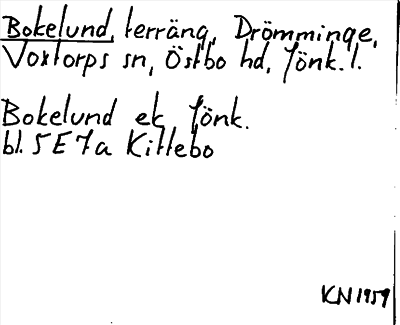 Bokelund, terräng, Drömminge,
Voxtorps sn, Östbo hd, Jönk. l.
Bokelund ek Jönk.
bl. 5E7a Kittebo
KN 1959